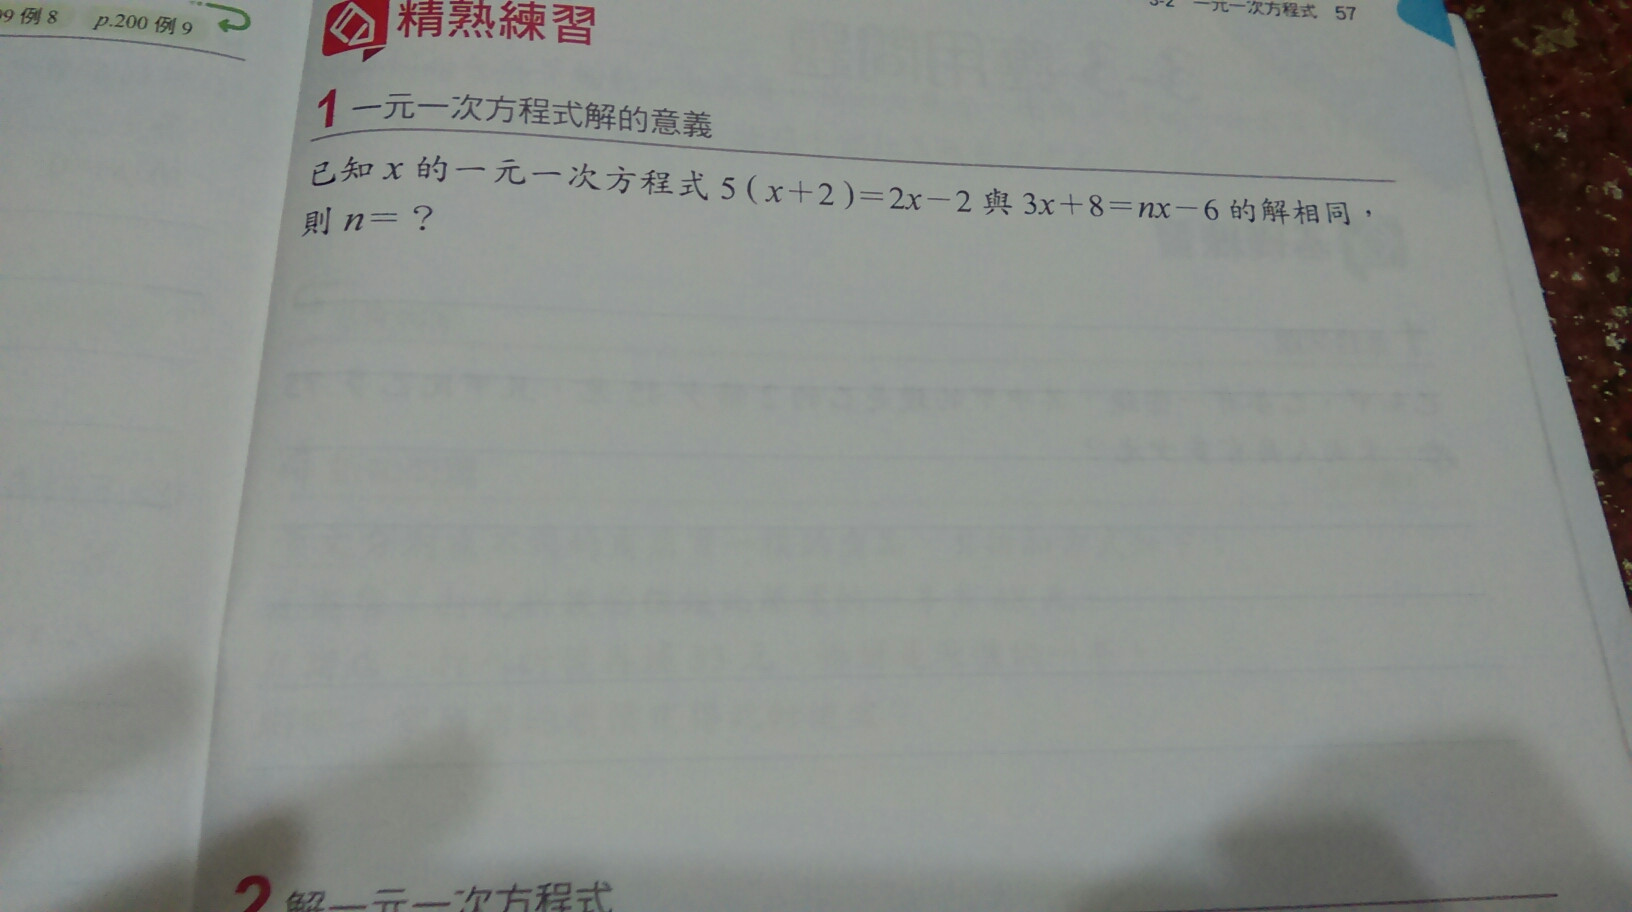 例 8 p.200 例 9
精熟練習
3-2 一元一次方程式 57
1 一元一次方程式解的意義
已知 x 的一元一次方程式 5(x+2)=2x-2 與 3x+8=nx-6 的解相同，
則 n=？
2 解一元一次方程式